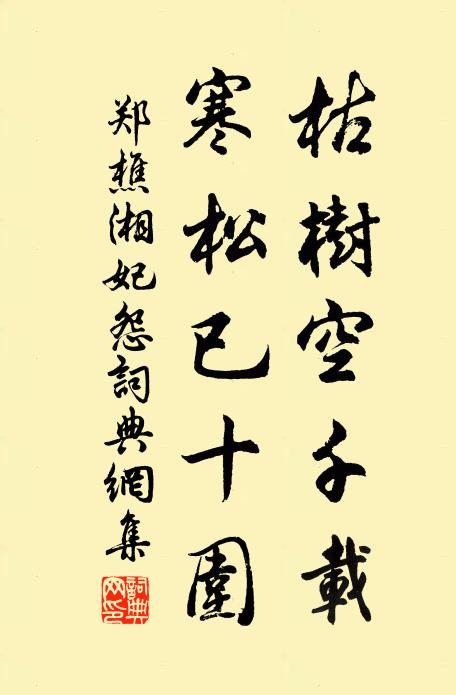 枯樹空千載
寒松已十圍
郑樵湘妃怨詞典網集
詞典网印